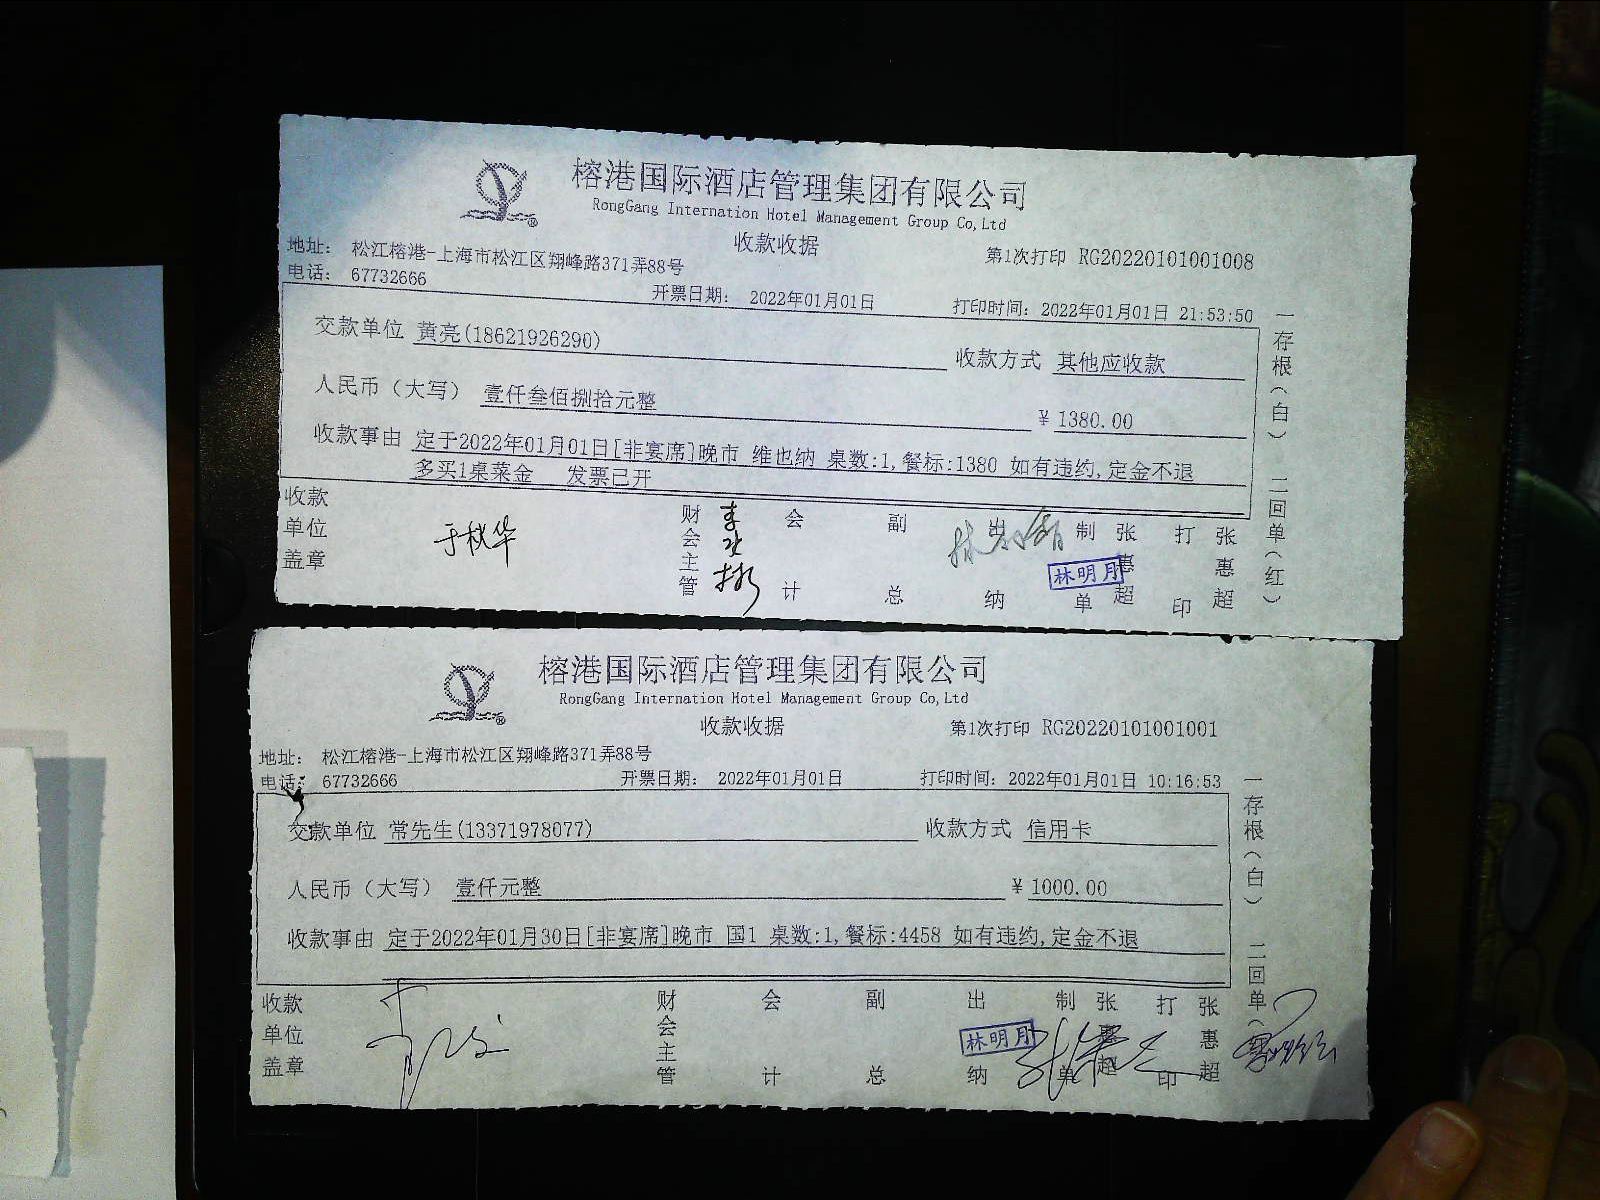 榕港国际酒店管理集团有限公司
RongGang Internation Hotel Management Group Co,Ltd
收款收据
第1次打印 RG20220101001008
地址： 松江榕港-上海市松江区翔峰路371弄88号
电话： 67732666
开票日期： 2022年01月01日
打印时间：2022年01月01日 21:53:50
交款单位 黄亮(18621926290)
收款方式 其他应收款
人民币（大写） 壹仟叁佰捌拾元整
￥ 1380.00
收款事由 定于2022年01月01日[非宴席]晚市 维也纳 桌数:1,餐标:1380 如有违约,定金不退
多买1桌菜金 发票已开
收款单位盖章 于秋华
财会主管
会计
副总
出纳
林明月
制单 张惠超
打印 张惠超
一存根（白） 二回单（红）
榕港国际酒店管理集团有限公司
RongGang Internation Hotel Management Group Co,Ltd
收款收据
第1次打印 RG20220101001001
地址： 松江榕港-上海市松江区翔峰路371弄88号
电话： 67732666
开票日期： 2022年01月01日
打印时间：2022年01月01日 10:16:53
交款单位 常先生(13371978077)
收款方式 信用卡
人民币（大写） 壹仟元整
￥ 1000.00
收款事由 定于2022年01月30日[非宴席]晚市 国1 桌数:1,餐标:4458 如有违约,定金不退
收款单位盖章
财会主管
会计
副总
出纳
林明月
制单 张惠超
打印 张惠超
一存根（白） 二回单（